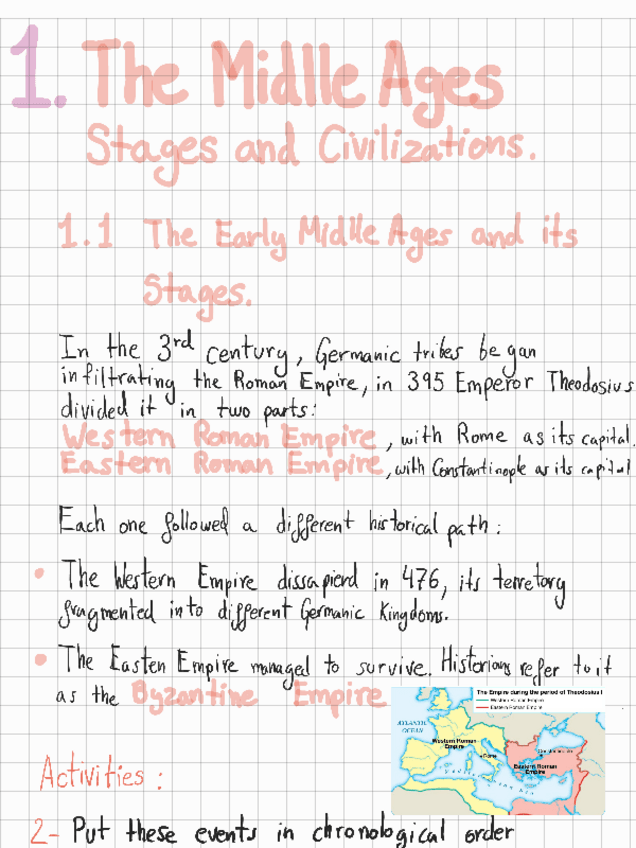 1. The Midlle Ages
Stages and Civilizations.
1.1 The Early Midlle Ages and its
Stages.
In the 3rd century, Germanic tribes began
infiltrating the Roman Empire, in 395 Emperor Theodosius
divided it in two parts:
Western Roman Empire, with Rome as its capital.
Eastern Roman Empire, with Constantinople as its capital
Each one followed a different historical path:
• The Western Empire dissapierd in 476, its terretory
fragmented into different Germanic Kingdoms.
• The Easten Empire managed to survive. Historians refer to it
as the Byzantine Empire
The Empire during the period of Theodosius I
Western Roman Empire
Eastern Roman Empire
ATLANTIC
OCEAN
Western Roman
Empire
Rome
Constantinople
Eastern Roman
Empire
Mediterranean Sea
Activities:
2- Put these events in chronological order